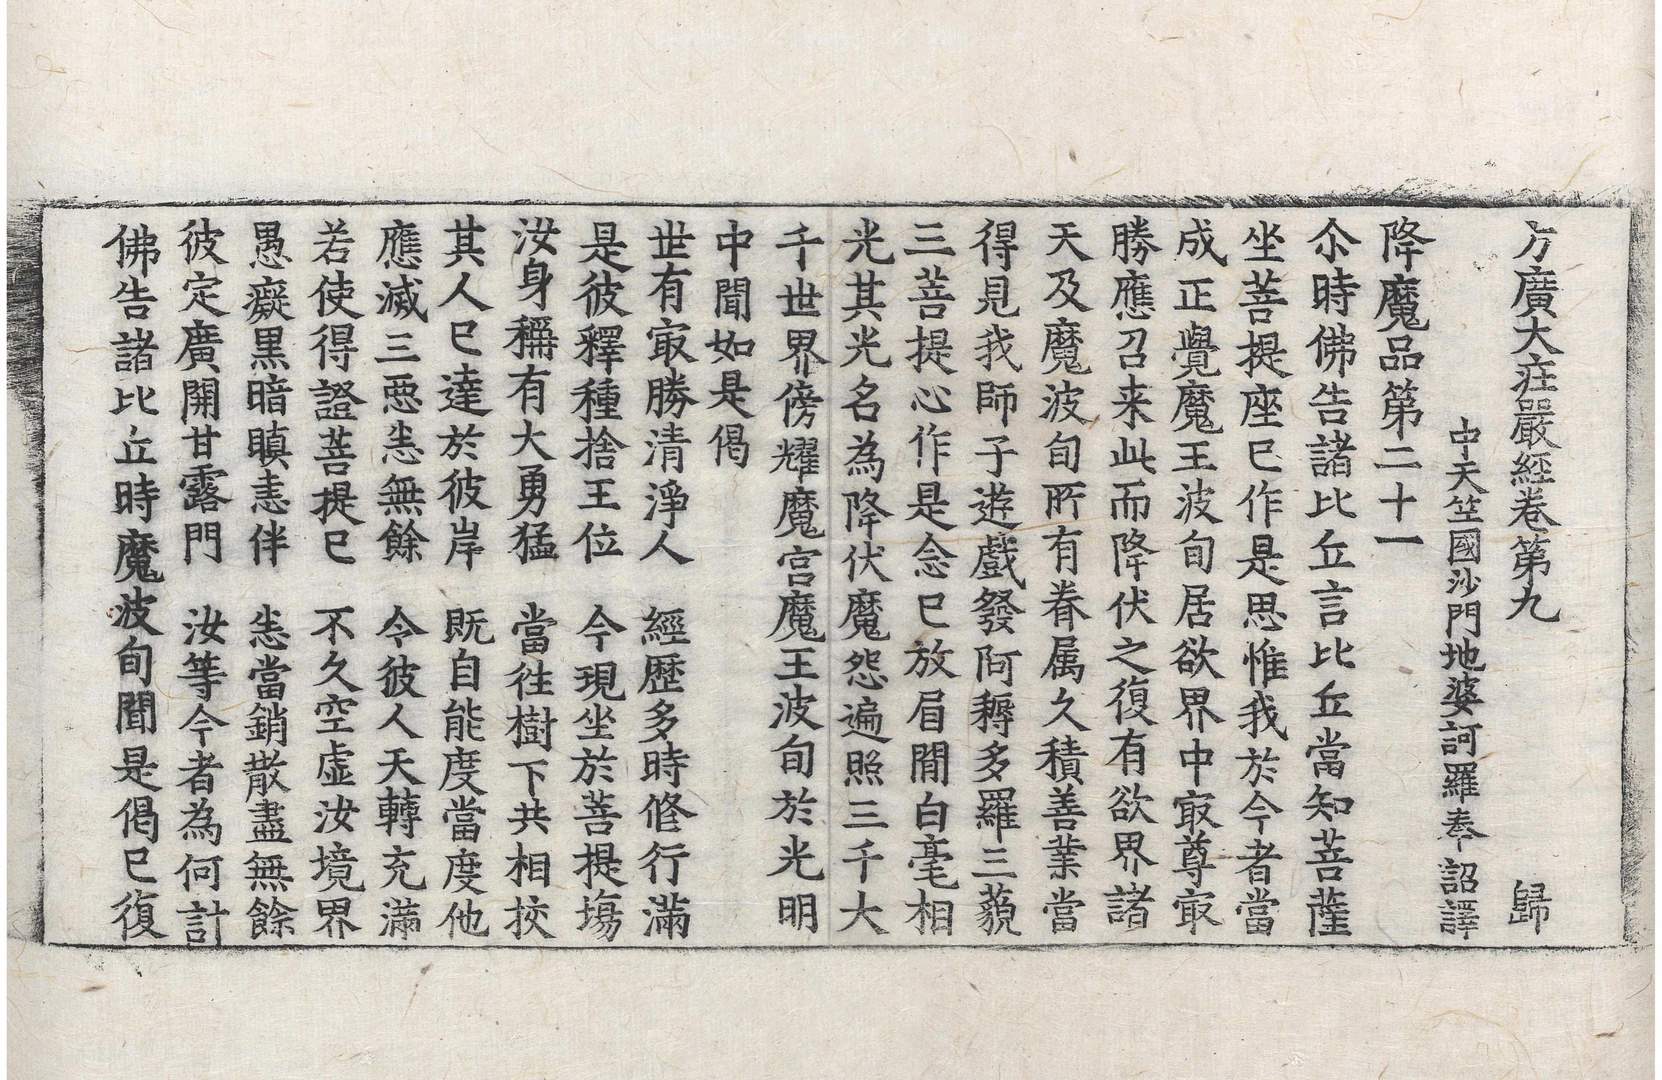 方廣大庄嚴經卷第九 歸
中天竺國沙門地婆訶羅奉 詔譯
降魔品第二十一
尒時佛告諸比丘言比丘當知菩薩
坐菩提座已作是思惟我於今者當
成正覺魔王波旬居欲界中㝡尊㝡
勝應召来此而降伏之復有欲界諸
天及魔波旬所有眷属久積善業當
得見我師子遊戲發阿耨多羅三藐
三菩提心作是念已放眉間白毫相
光其光名為降伏魔怨遍照三千大
千世界傍耀魔宫魔王波旬於光明
中聞如是偈
世有㝡勝清淨人 經歷多時修行滿
是彼釋種捨王位 今現坐於菩提場
汝身稱有大勇猛 當往樹下共相挍
其人已達於彼岸 既自能度當度他
應滅三惡悉無餘 令彼人天轉充滿
若使得證菩提已 不久空虛汝境界
愚癡黒暗瞋恚伴 悉當銷散盡無餘
彼定廣開甘露門 汝等今者為何計
佛告諸比丘時魔波旬聞是偈已復